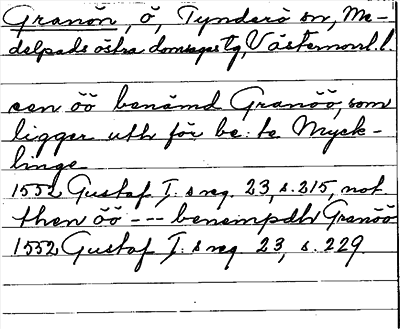 Granön, ö, Tynderö sn, Me-
delpads östra domsagas tg, Västernorrl. l.
een öö benämd Granöö, som
ligger uth för be: te Myck-
linge
1552 Gustaf I: s reg. 23, s. 215, not
then öö --- benempdh Granöö
1552 Gustaf I: s reg. 23, s. 229.